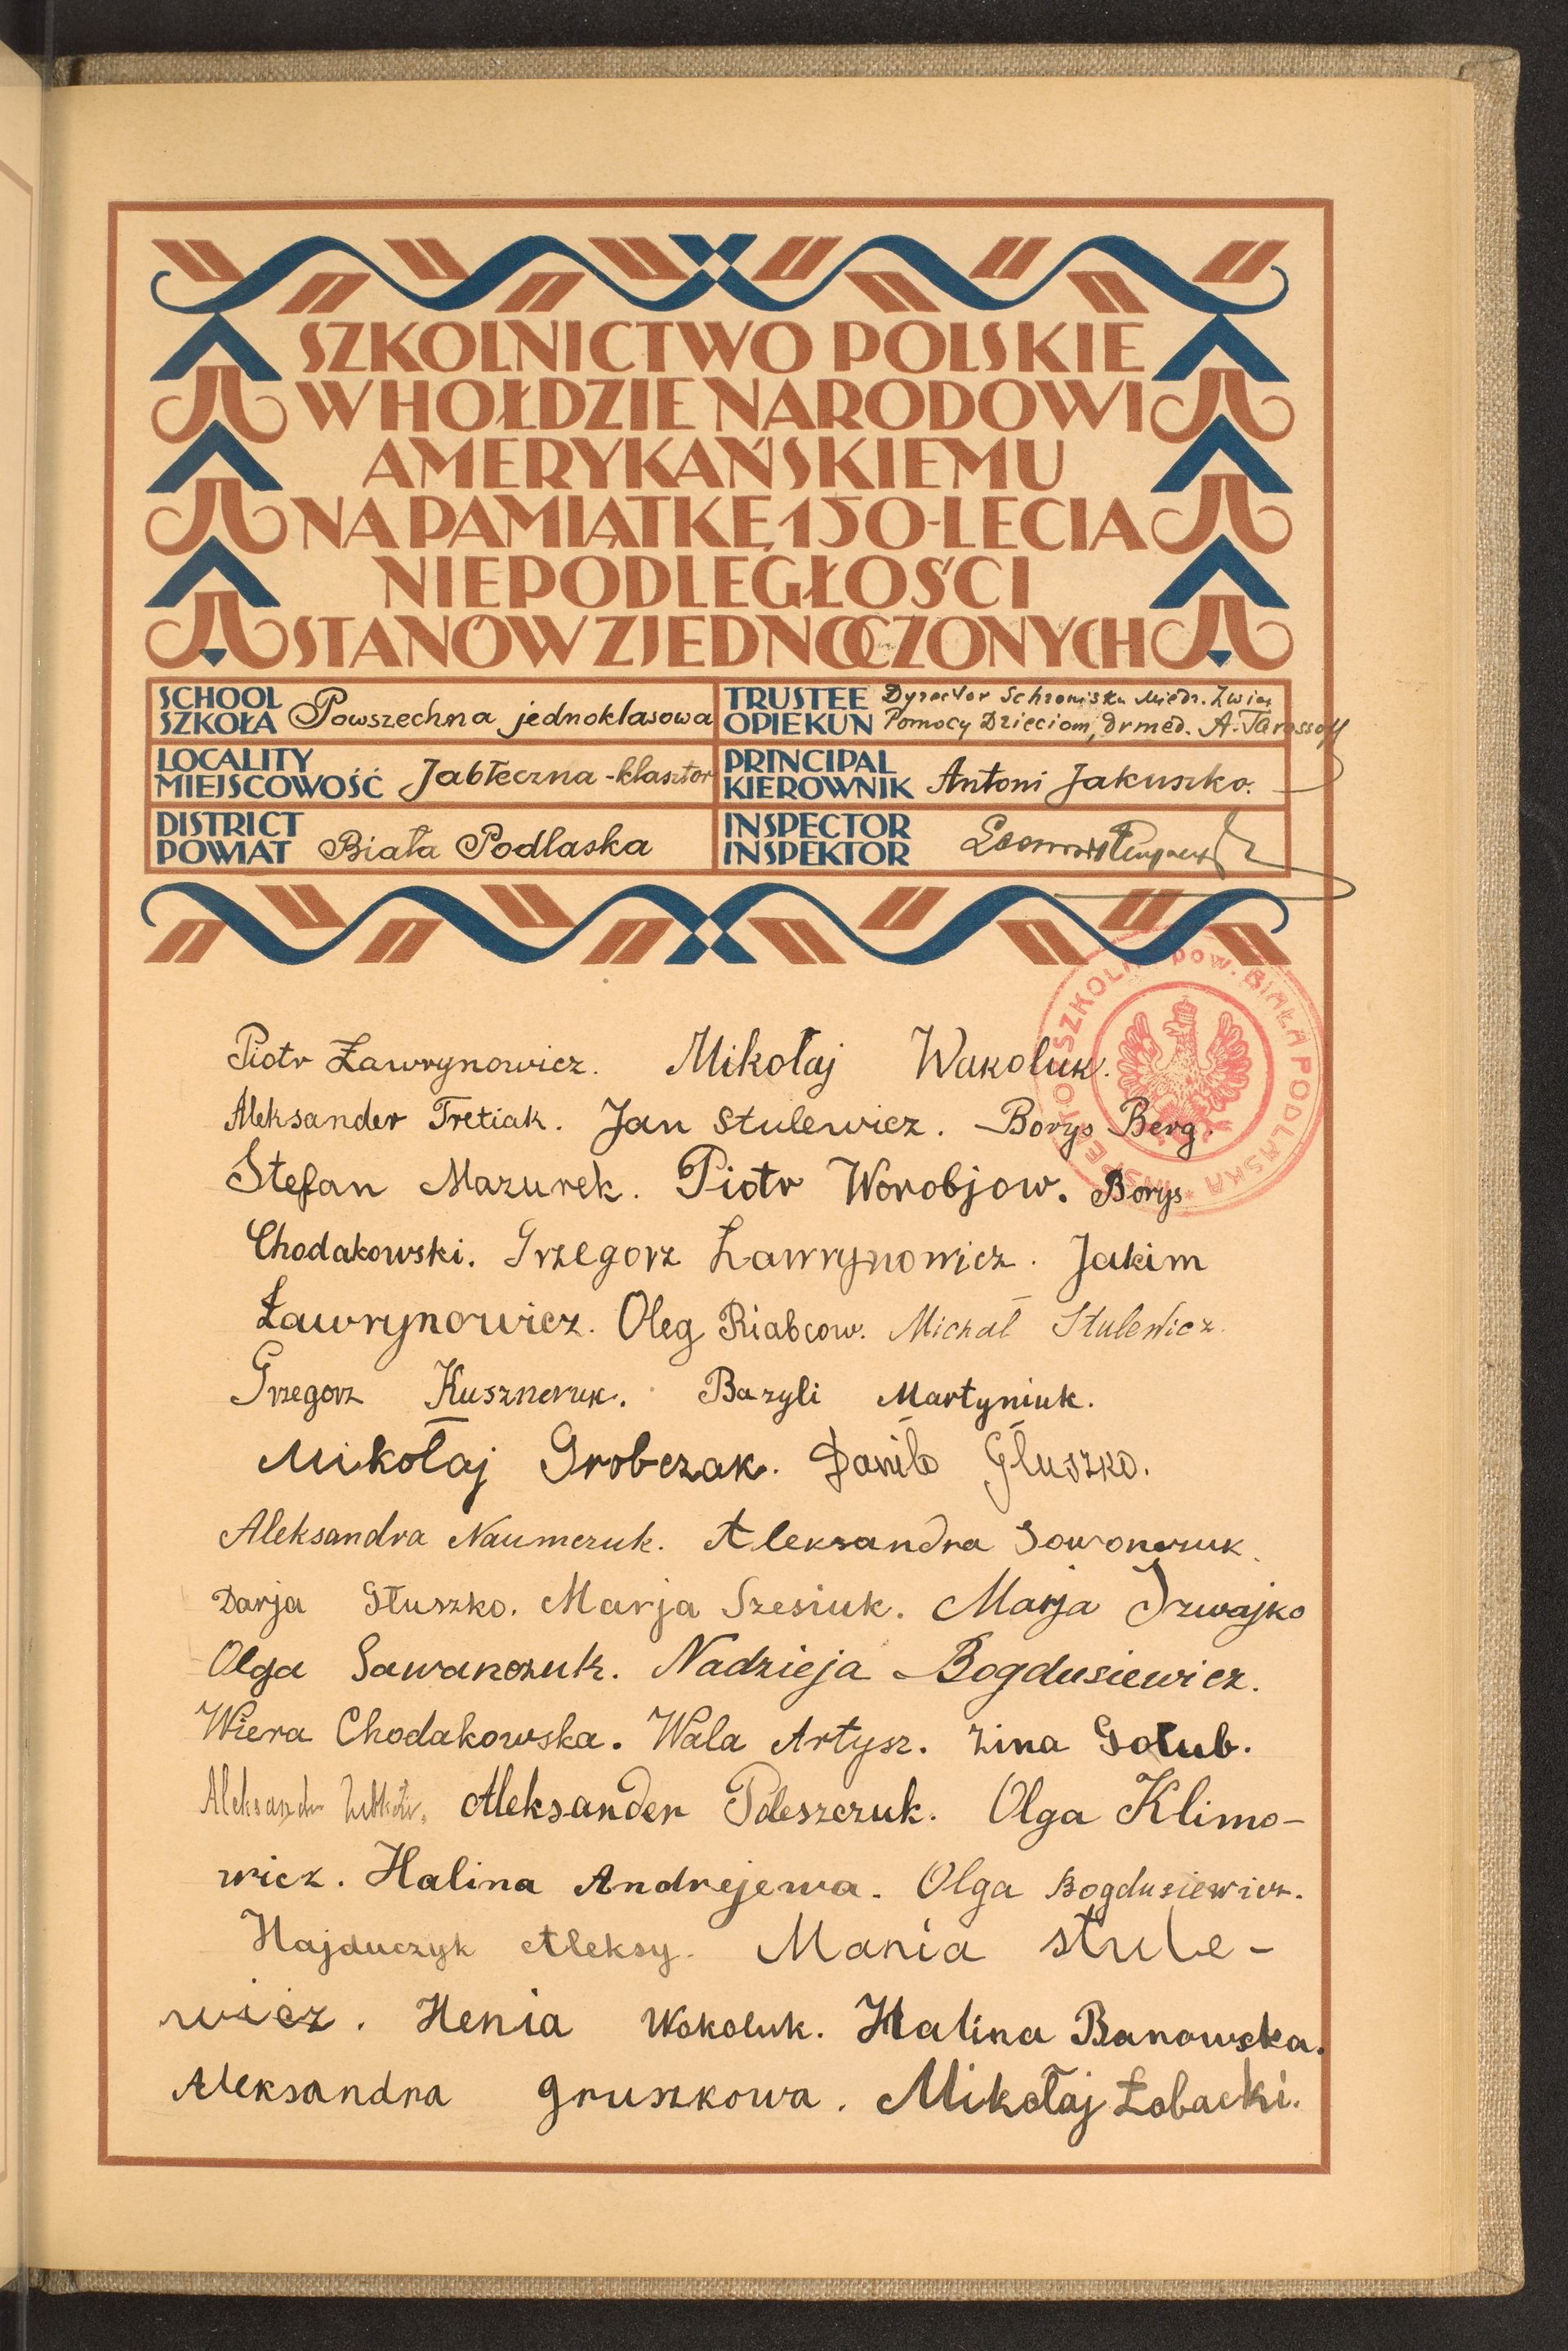 SZKOLNICTWO POLSKIE
W HOŁDZIE NARODOWI
AMERYKAŃSKIEMU
NA PAMIĄTKĘ 150-LECIA
NIEPODLEGŁOŚCI
STANÓW ZJEDNOCZONYCH
SCHOOL
SZKOŁA Powszechna jednoklasowa
TRUSTEE Dyrector Schroniska Miedz. Związ
OPIEKUN Pomocy Dzieciom, Dr med. A. Tarassoff
LOCALITY
MIEJSCOWOŚĆ Jabłeczna-klasztor
PRINCIPAL
KIEROWNIK Antoni Jakuszko.
DISTRICT
POWIAT Biała Podlaska
INSPECTOR
INSPEKTOR
INSPEKTOR SZKOLNY pow. BIAŁA PODLASKA *
Piotr Ławrynowicz. Mikołaj Wakoluk.
Aleksander Tretiak. Jan Stulewicz. Borys Berg.
Stefan Mazurek. Piotr Worobjow. Borys
Chodakowski. Grzegorz Ławrynowicz. Jakim
Ławrynowicz. Oleg Riabcow. Michał Stulewicz.
Grzegorz Kuszneruk. Bazyli Martyniuk.
Mikołaj Grobczak. Daniło Głuszko.
Aleksandra Naumczuk. Aleksandra Sowonczuk.
Darja Głuszko. Marja Szesiuk. Marja Izwajko
Olga Sawanczuk. Nadzieja Bogdusiewicz.
Wiera Chodakowska. Wala Artysz. Zina Gołub.
Aleksander Aleksander Poleszczuk. Olga Klimo-
wicz. Halina Andrejewa. Olga Bogdusiewicz.
Hajduczyk Aleksy. Mania stule-
wicz. Henia Wokoluk. Halina Banowska.
Aleksandra gruszkowa. Mikołaj Łobacki.